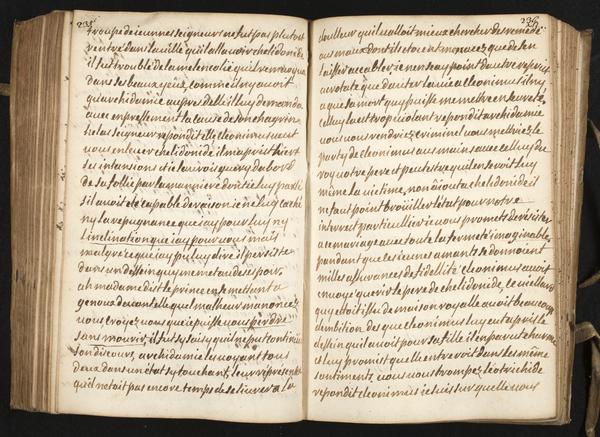 235
troupe de jeunes seigneurs ne fut pas plutost
rentré dans la ville quil alla voir chelidonide
il fut troublé de la melencolie quil remarqua
dans ses beaux yeux, comme il ny auoit
quarchidamie aupres delle il luy demanda
auec enpressement la cause de son chagrin
helas seigneur repondit elle cleonimus ueut
nous enleuer chelidonide il ma apris thier
ses intansions et ie lauois pris dabord
de sa follie par la manniere dont il en parle
sil auoit esté capable de raison ie ne luy ay caché
ny la repugnance que iay pour luy ny
linclination que iay pour uous mais
malgré ce que iay pu luy dire il persiste
dans un dessein quy me met au desespoir,
ah madame dit le prince en se mettant a
genoux deuant elle quel malheur manoncez
uous, croyez uous que ie puisse uous perdre
sans mourir, il fut sy saisy quil ne put continuer
son discours, archidamie les uoyant tous
deux dans un état sy touchant, leur representa
quil netoit pas encore temps de se liurer a la
236
doulleur quil ualloit mieux chercher du remede
aux maux dont ils etoient menacez que de sen
laisser accabler, ie nen scay point dautre reprit
acrotate que dauter la uie a cleonimus il ny
a que sa mort quy puisse me mettre en seureté,
celluy la est trop uiolant repondit archidamie
uous uous rendriez criminel uous mettriez le
party de cleonimus aux mains auec celluy du
roy uotre pere et peut estre quil en seroit luy
même la uictime, non aiouta chelidonide il
ne faut point broüiller letat pour notre
interest particullier ie uous promets de resister
a ce mariage auec toute la fermeté imaginable,
pandant que les ieunes amants se donnoient
milles assurances de fidelité cleonimus auoit
enuoyé querir le pere de chelidonide, ce uieillard
quy etoit issu de maison royalle auoit beaucoup
dambition des que cleonimus luy eut apris le
dessein quil auoit pour sa fille il en parut charmé
et luy promist quelle entreroit dans les même
sentiments, uous uous trompez leotichide
repondit cleonimus ie suis sur quelle uous